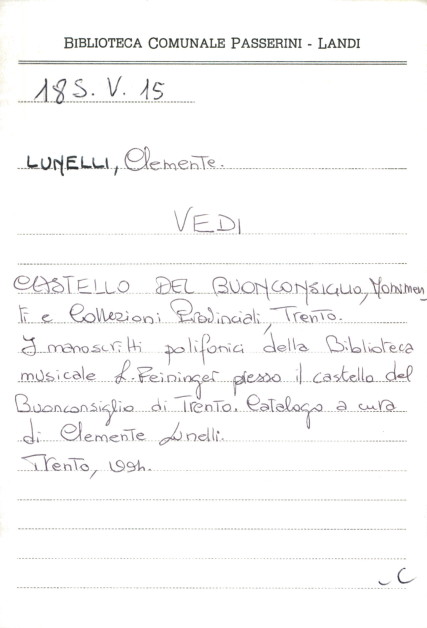 BIBLIOTECA COMUNALE PASSERINI - LANDI
18 S. V. 15
LUNELLI, Clemente.
VEDI
CASTELLO DEL BUONCONSIGLIO, Monumen
ti e Collezioni Provinciali, Trento.
I manoscritti polifonici della Biblioteca
musicale L. Feininger presso il castello del
Buonconsiglio di Trento. Catalogo a cura
di Clemente Lunelli.
Trento, 1994.